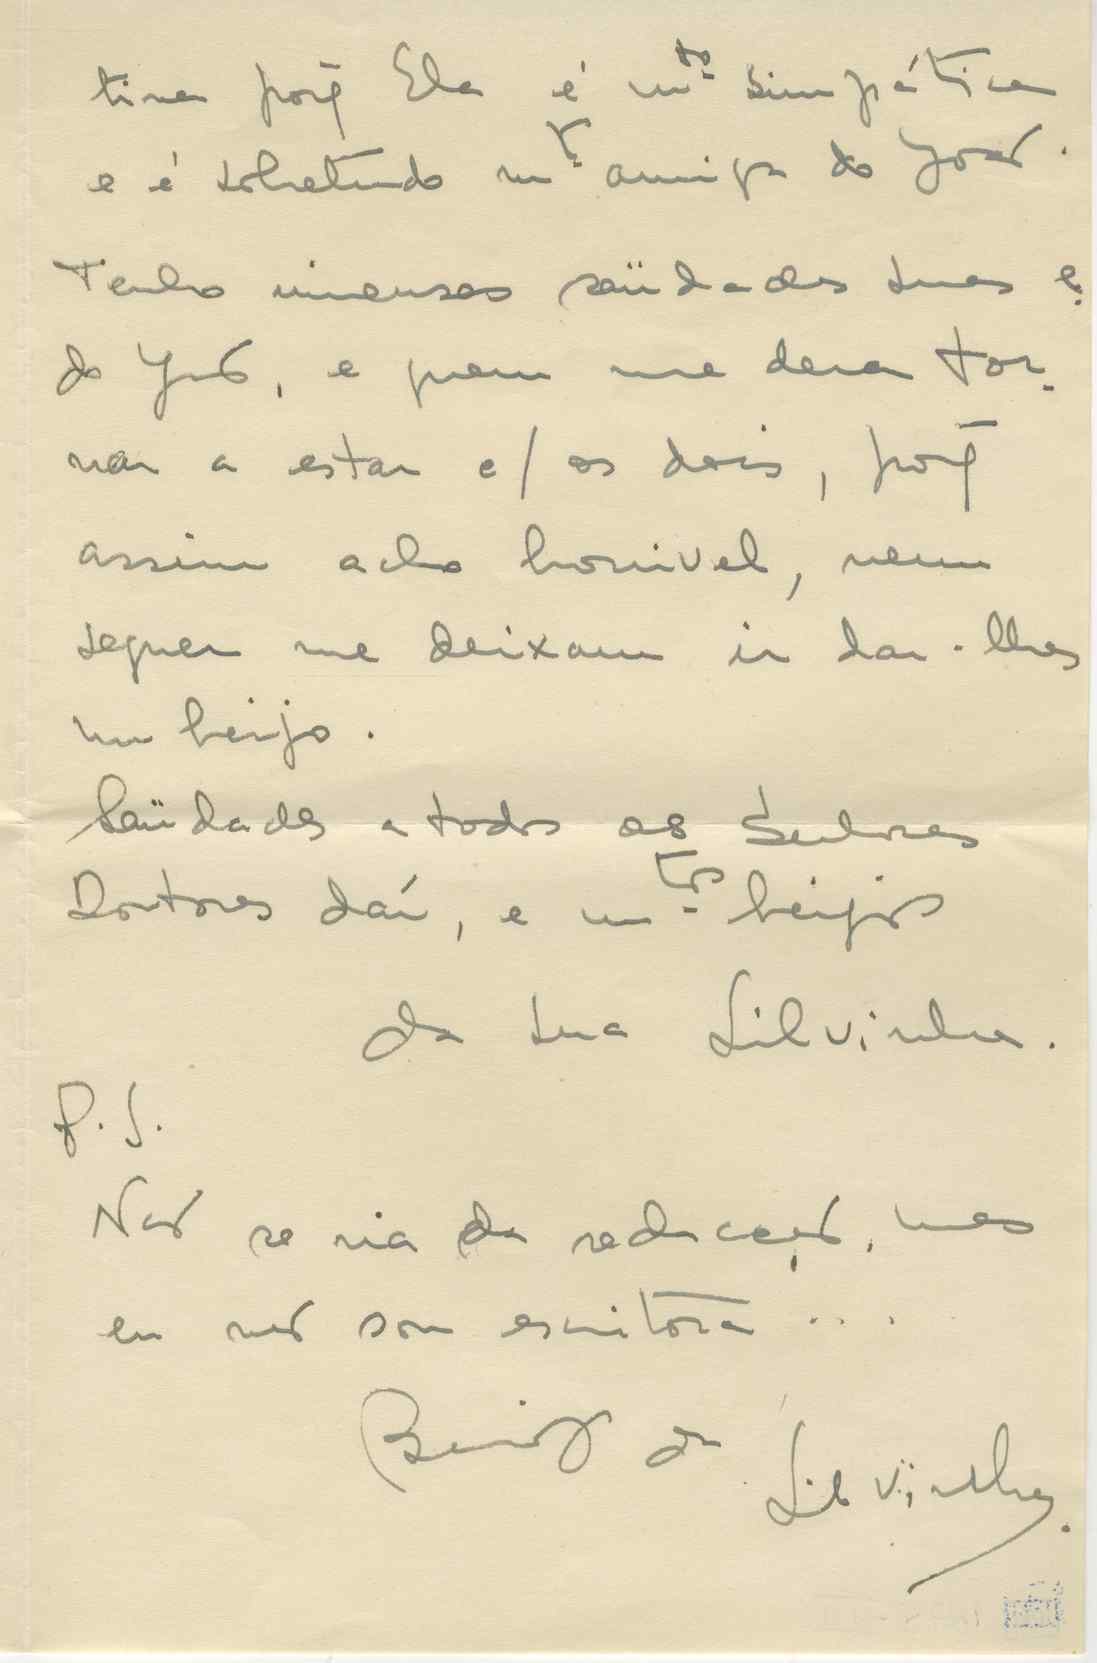 tina porq̃ Ela é mto. simpática
e é sobretudo mt. amiga do João.
Tenho imensas saüdades suas e
do João, e quem me dera tor-
nar a estar c/ os dois, porq̃
assim acho horrivel, nem
sequer me deixam ir dar-lhes
um beijo.
Saüdades a todos os Senhores
Doutores daí, e mtos. beijos
da sua Silvinha.
P.S.
Não se ria da redacção, mas
eu não sou escritora...
Beijos da
Silvinha.